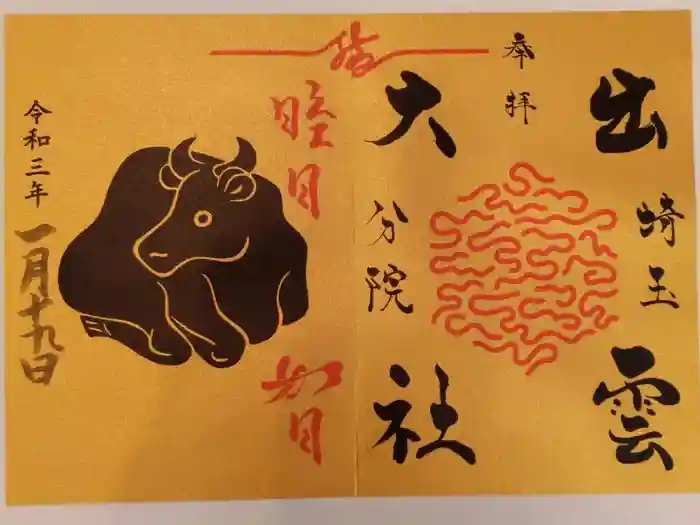 出雲
埼玉
奉拝
大社
分院
睦月
如月
令和三年
一月十九日